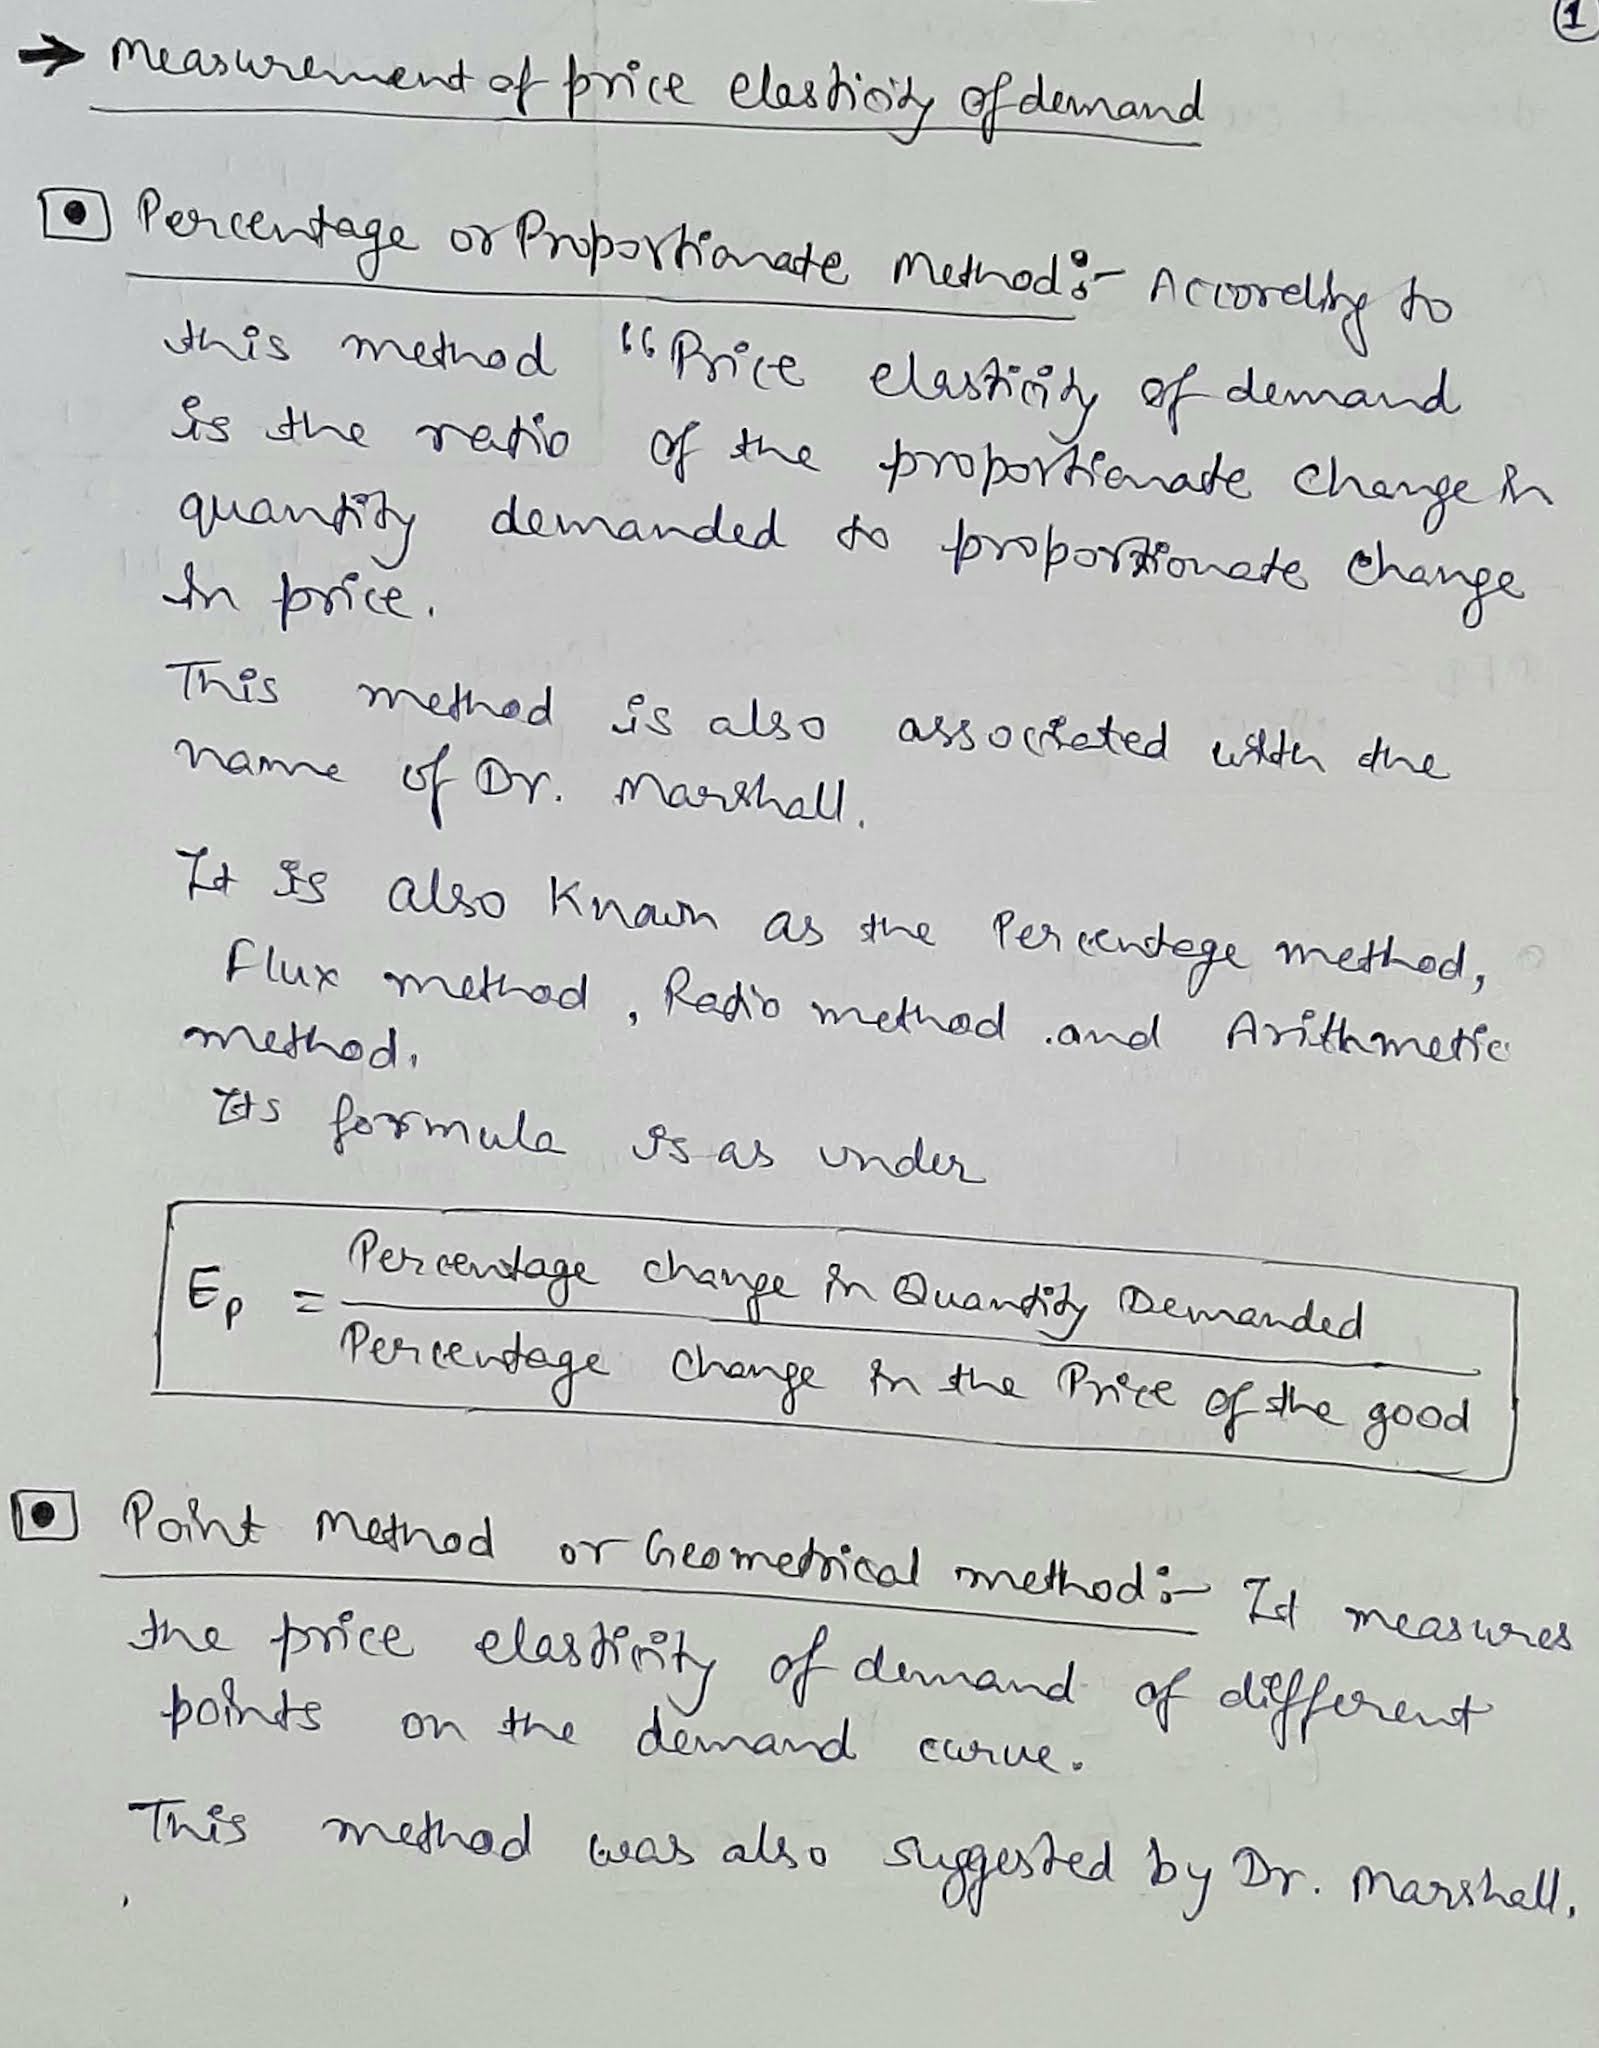 1
→ Measurement of price elasticity of demand
Percentage or Proportionate Method:- According to
this method "Price elasticity of demand
is the ratio of the proportionate change in
quantity demanded to proportionate change
in price.
This method is also associated with the
name of Dr. Marshall.
It is also known as the Percentage method,
Flux method, Ratio method and Arithmetic
method.
Its formula is as under
Ep = Percentage change in Quantity Demanded
Percentage change in the Price of the good
Point Method or Geometrical method:- It measures
the price elasticity of demand of different
points on the demand curve.
This method was also suggested by Dr. Marshall.